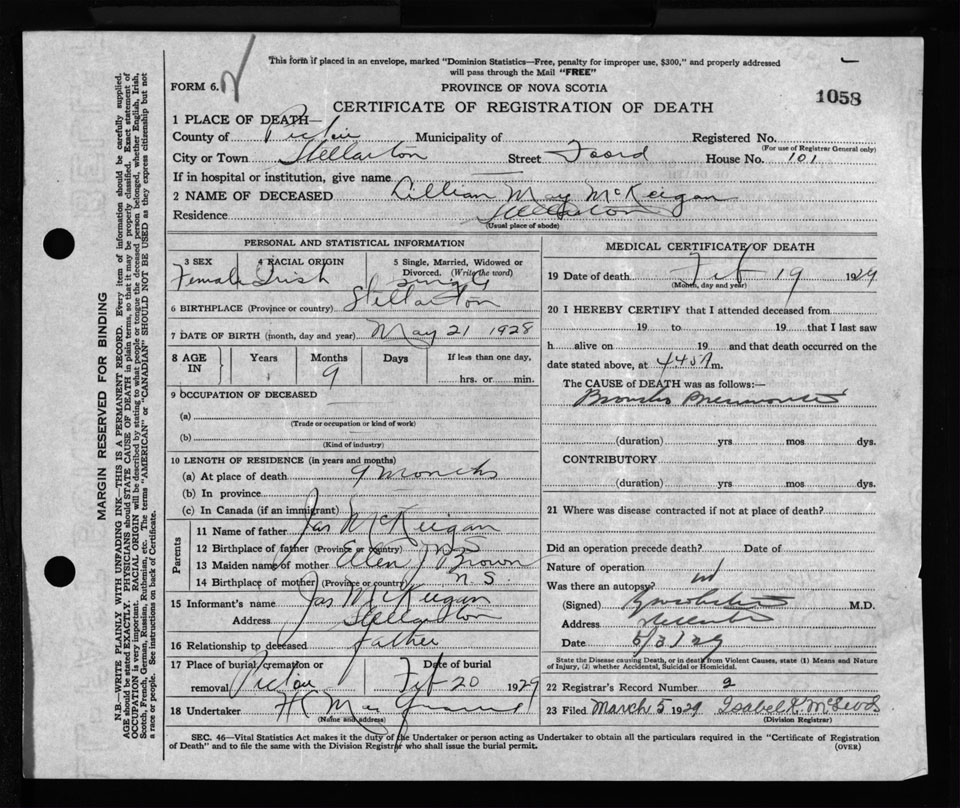 This form if placed in an envelope, marked "Dominion Statistics—Free, penalty for improper use, $300," and properly addressed
will pass through the Mail "FREE"
FORM 6.
PROVINCE OF NOVA SCOTIA
CERTIFICATE OF REGISTRATION OF DEATH
1058
1 PLACE OF DEATH—
County of Pictou Municipality of Registered No.
(For use of Registrar General only)
City or Town Stellarton Street Foord House No. 101
If in hospital or institution, give name
2 NAME OF DECEASED Lillian May McKeigan
Residence Stellarton
(Usual place of abode)
PERSONAL AND STATISTICAL INFORMATION
3 SEX 4 RACIAL ORIGIN 5 Single, Married, Widowed or
Divorced. (Write the word)
Female Irish Single
6 BIRTHPLACE (Province or country) Stellarton
7 DATE OF BIRTH (month, day and year) May 21 1928
8 AGE IN Years Months Days If less than one day,
9 hrs. or min.
9 OCCUPATION OF DECEASED
(a)
(Trade or occupation or kind of work)
(b)
(Kind of industry)
10 LENGTH OF RESIDENCE (in years and months)
(a) At place of death 9 months
(b) In province
(c) In Canada (if an immigrant)
Parents
11 Name of father Jas McKeigan
12 Birthplace of father (Province or country) N S
13 Maiden name of mother Ellen J Brown
14 Birthplace of mother (Province or country) N.S.
15 Informant's name Jas McKeigan
Address Stellarton
16 Relationship to deceased father
17 Place of burial, cremation or Date of burial
removal Pictou Feb 20 1929
18 Undertaker H
(Name and address)
MEDICAL CERTIFICATE OF DEATH
19 Date of death Feb 19 1929
(Month, day and year)
20 I HEREBY CERTIFY that I attended deceased from
19 to 19 that I last saw
h alive on 19 and that death occurred on the
date stated above, at m.
The CAUSE of DEATH was as follows:—
Broncho Pneumonia
(duration) yrs mos dys.
CONTRIBUTORY
(duration) yrs mos dys.
21 Where was disease contracted if not at place of death?
Did an operation precede death? Date of
Nature of operation
Was there an autopsy?
(Signed) M.D.
Address Stellarton
Date 5/3/29
State the Disease causing Death, or in death from Violent Causes, state (1) Means and Nature
of Injury, (2) whether Accidental, Suicidal or Homicidal.
22 Registrar's Record Number 2
23 Filed March 5 1929 Isabel K. McLeod
(Division Registrar)
SEC. 46—Vital Statistics Act makes it the duty of the Undertaker or person acting as Undertaker to obtain all the particulars required in the "Certificate of Registration
of Death" and to file the same with the Division Registrar who shall issue the burial permit.
(OVER)
MARGIN RESERVED FOR BINDING
N.B.—WRITE PLAINLY WITH UNFADING INK—THIS IS A PERMANENT RECORD. Every item of information should be carefully supplied.
AGE should be stated EXACTLY. PHYSICIANS should STATE CAUSE OF DEATH in plain terms, so that it may be properly classified. Exact statement of
OCCUPATION is very important. RACIAL ORIGIN will be described by stating to what people or tongue the deceased person belonged, whether English, Irish,
Scotch, French, German, Russian, Ruthenian, etc. The terms "AMERICAN" or "CANADIAN" SHOULD NOT BE USED as they express citizenship but not
a race or people. See instructions on back of Certificate.